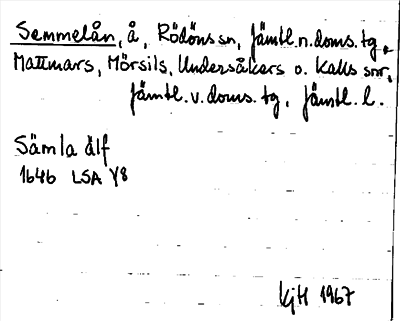 Semmelån, å, Rödöns sn, Jämtl. n. doms. tg,
Mattmars, Mörsils, Undersåkers o. Kalls snr,
Jämtl. v. doms. tg, Jämtl. l.
Sämla älf
1646 LSA Y8
KjH 1967